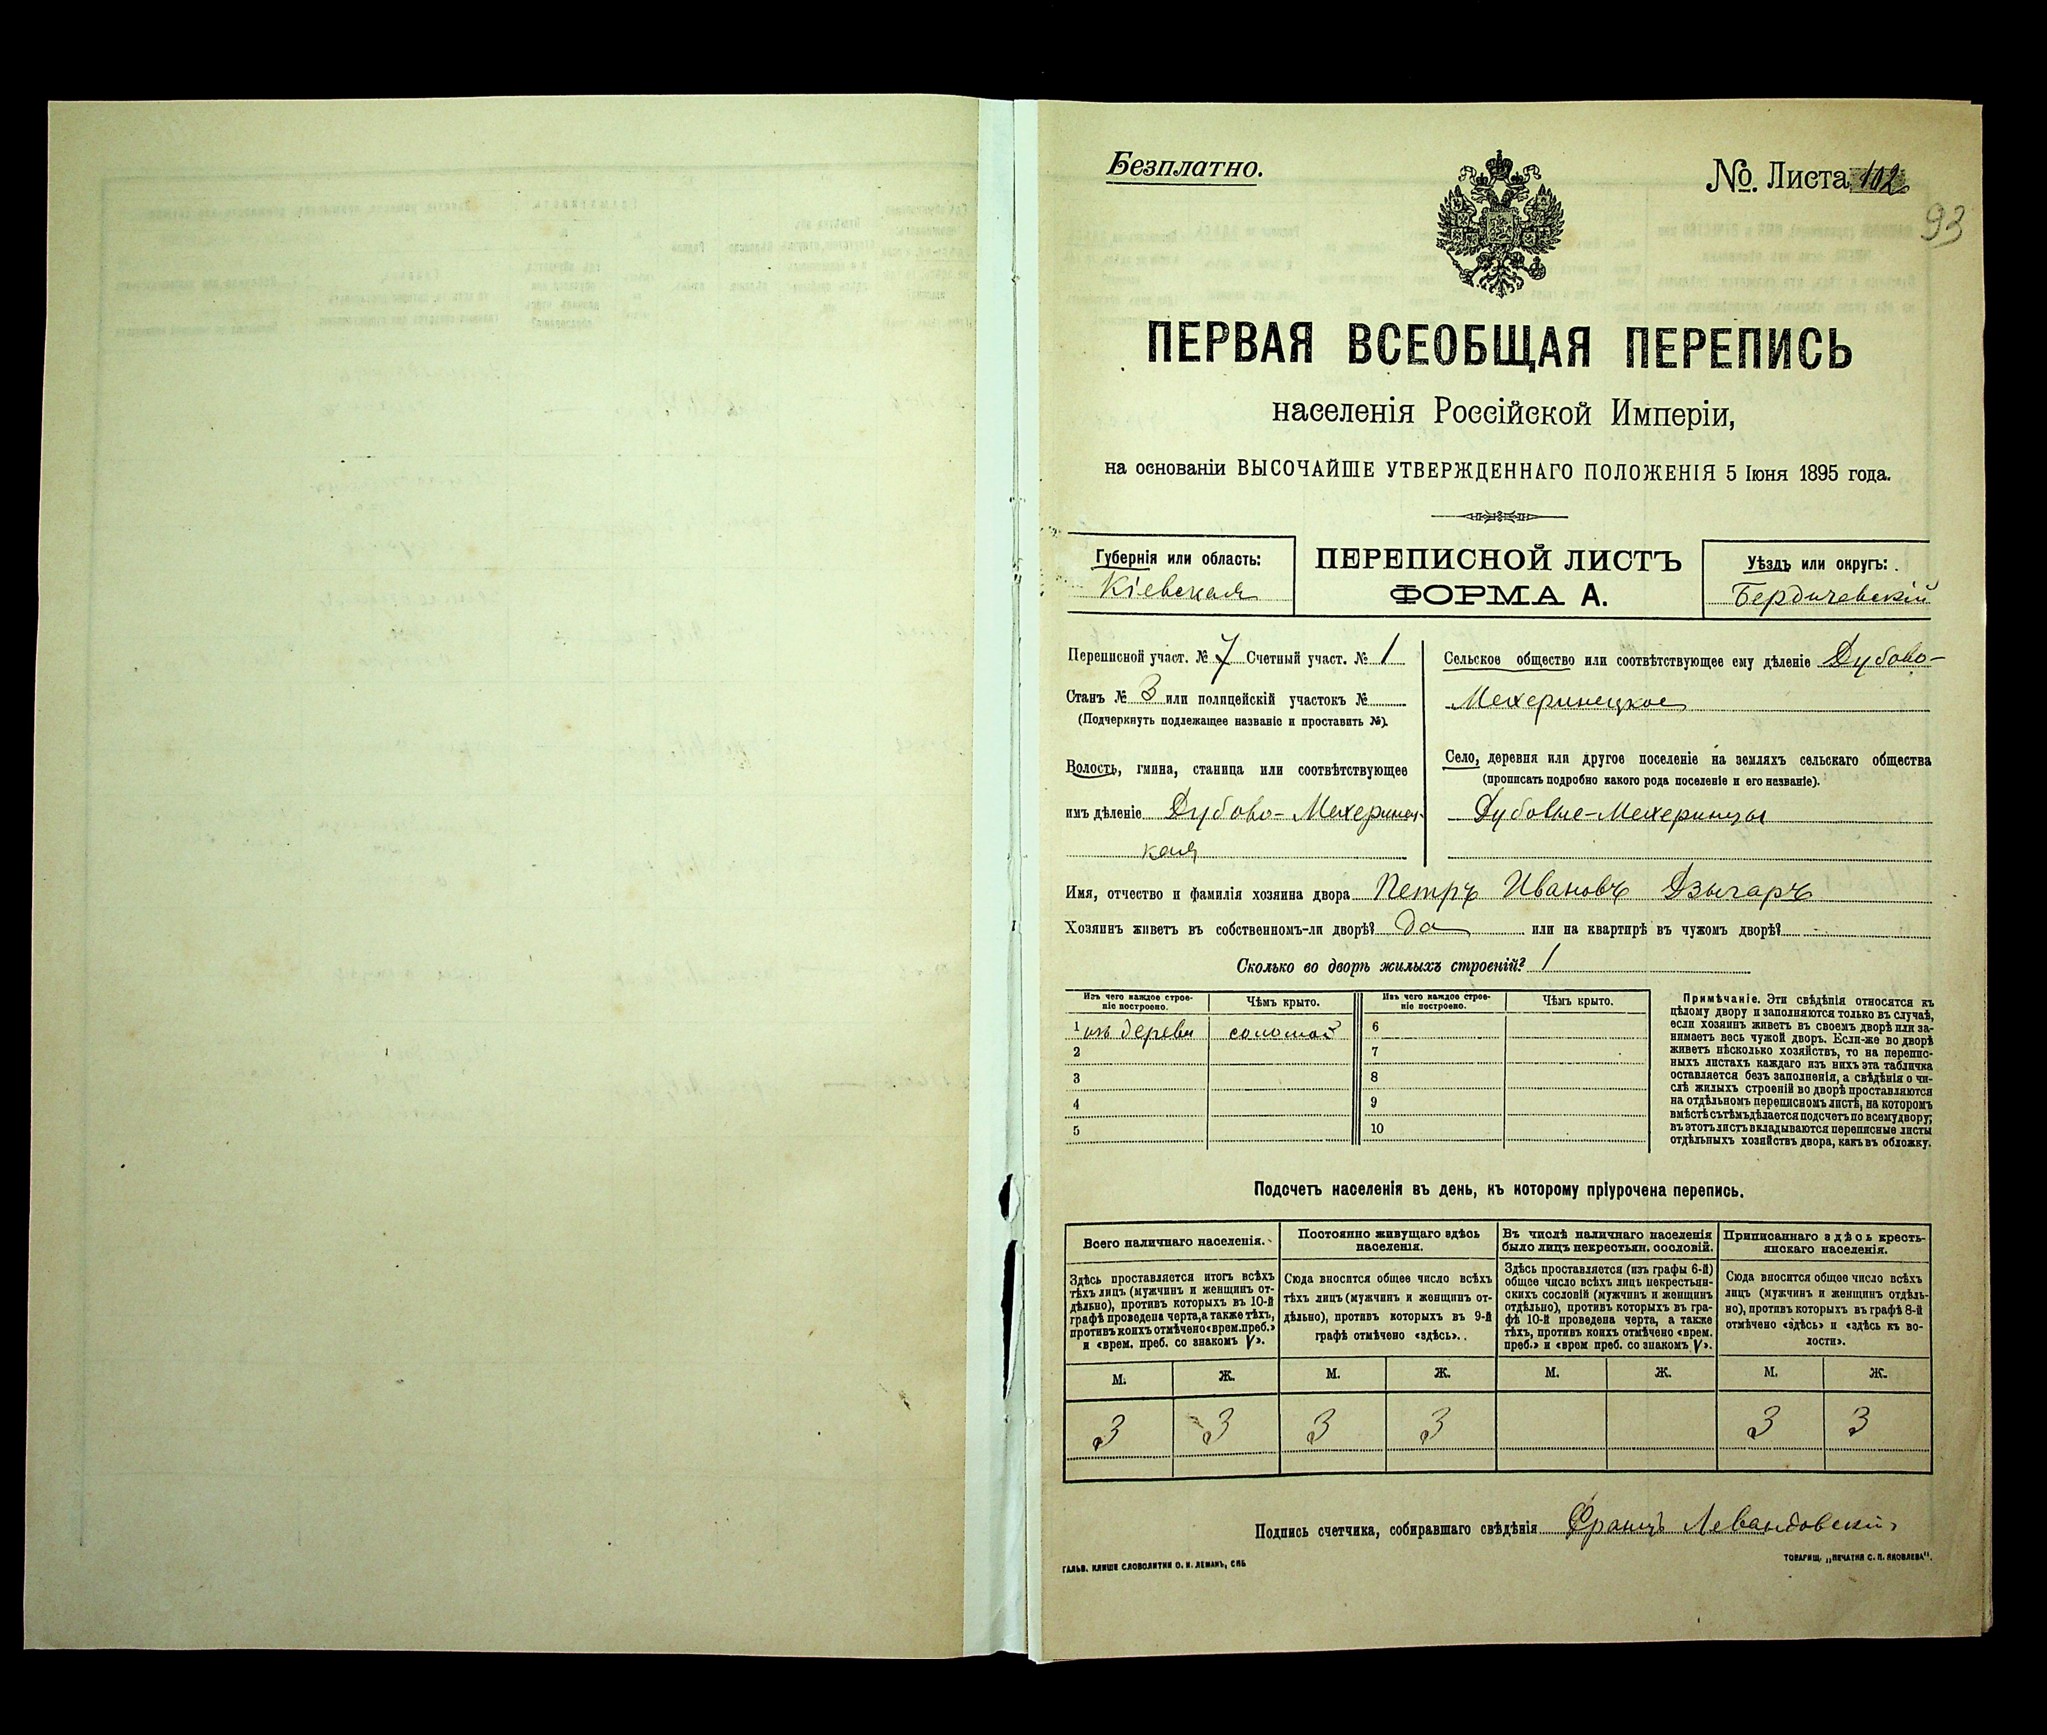 Безплатно.
№ Листа 102
93
ПЕРВАЯ ВСЕОБЩАЯ ПЕРЕПИСЬ
населенія Россійской Имперіи,
на основаніи ВЫСОЧАЙШЕ УТВЕРЖДЕННАГО ПОЛОЖЕНІЯ 5 Іюня 1895 года.
Губернія или область:
Кіевская
ПЕРЕПИСНОЙ ЛИСТЪ
ФОРМА А.
Уѣздъ или округъ:
Бердичевскій
Переписной участ. № 7 Счетный участ. № 1
Станъ № 3 или полицейскій участокъ №
(Подчеркнуть подлежащее названіе и проставить №).
Волость, гмина, станица или соотвѣтствующее
имъ дѣленіе Дубово-Мехеринец-
кая
Сельское общество или соотвѣтствующее ему дѣленіе Дубово-
Мехеринецкое
Село, деревня или другое поселеніе на земляхъ сельскаго общества
(прописать подробно какого рода поселеніе и его названіе).
Дубовые-Мехеринцы
Имя, отчество и фамилія хозяина двора Петръ Ивановъ Дзыгаръ
Хозяинъ живетъ въ собственномъ-ли дворѣ? да или на квартирѣ въ чужомъ дворѣ? -
Сколько во дворѣ жилыхъ строеній? 1
Изъ чего каждое строе-
ніе построено.
Чѣмъ крыто.
Изъ чего каждое строе-
ніе построено.
Чѣмъ крыто.
1 изъ дерева соломой 6
2 7
3 8
4 9
5 10
Примѣчаніе. Эти свѣдѣнія относятся къ
цѣлому двору и заполняются только въ случаѣ,
если хозяинъ живетъ въ своемъ дворѣ или за-
нимаетъ весь чужой дворъ. Если-же во дворѣ
живетъ нѣсколько хозяйствъ, то на перепис-
ныхъ листахъ каждаго изъ нихъ эта табличка
оставляется безъ заполненія, а свѣдѣнія о чи-
слѣ жилыхъ строеній во дворѣ проставляются
на отдѣльномъ переписномъ листѣ, на которомъ
вмѣстѣ съ тѣмъ дѣлается подсчетъ по всему двору;
въ этотъ листъ вкладываются переписные листы
отдѣльныхъ хозяйствъ двора, какъ въ обложку.
Подсчетъ населенія въ день, къ которому пріурочена перепись.
Всего наличнаго населенія.
Здѣсь проставляется итогъ всѣхъ
тѣхъ лицъ (мужчинъ и женщинъ от-
дѣльно), противъ которыхъ въ 10-й
графѣ проведена черта, а также тѣхъ,
противъ коихъ отмѣчено «врем. преб.»
и «врем. преб. со знакомъ V».
Постоянно живущаго здѣсь
населенія.
Сюда вносится общее число всѣхъ
тѣхъ лицъ (мужчинъ и женщинъ от-
дѣльно), противъ которыхъ въ 9-й
графѣ отмѣчено «здѣсь».
Въ числѣ наличнаго населенія
было лицъ некрестьян. сословій.
Здѣсь проставляется (изъ графы 6-й)
общее число всѣхъ лицъ некрестьян-
скихъ сословій (мужчинъ и женщинъ
отдѣльно), противъ которыхъ въ гра-
фѣ 10-й проведена черта, а также
тѣхъ, противъ коихъ отмѣчено «врем.
преб.» и «врем преб. со знакомъ V».
Приписаннаго здѣсь кресть-
янскаго населенія.
Сюда вносится общее число всѣхъ
лицъ (мужчинъ и женщинъ отдѣль-
но), противъ которыхъ въ графѣ 8-й
отмѣчено «здѣсь» и «здѣсь въ во-
лости».
М. Ж. М. Ж. М. Ж. М. Ж.
3 3 3 3 3 3
Подпись счетчика, собиравшаго свѣдѣнія Францъ Левандовскій
ГАЛЬВ. КЛИШЕ СЛОВОЛИТНИ О. И. ЛЕМАНЪ, СПБ
ТОВАРИЩ. „ПЕЧАТНЯ С. П. ЯКОВЛЕВА".